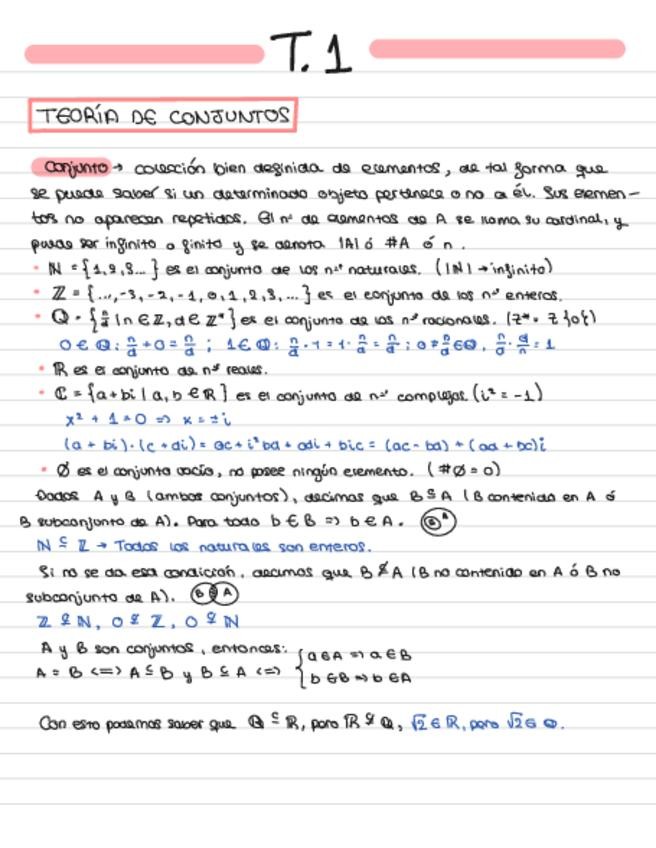 T.1
TEORÍA DE CONJUNTOS
Conjunto → colección bien definida de elementos, de tal forma que
se puede saber si un determinado objeto pertenece o no a él. Sus elemen-
tos no aparecen repetidos. El nº de elementos de A se llama su cardinal, y
puede ser infinito o finito y se denota |A| ó #A ó n.
• ℕ = {1,2,3...} es el conjunto de los nºˢ naturales. (|ℕ| → infinito)
• ℤ = {..., -3, -2, -1, 0, 1, 2, 3, ...} es el conjunto de los nºˢ enteros.
• ℚ = {n/d | n ∈ ℤ, d ∈ ℤ*} es el conjunto de los nºˢ racionales. (ℤ* = ℤ\{0})
0 ∈ ℚ: n/d + 0 = n/d ; 1 ∈ ℚ: n/d · 1 = 1 · n/d = n/d ; 0 ≠ n/d ∈ ℚ, n/d · d/n = 1
• ℝ es el conjunto de nºˢ reales.
• ℂ = {a+bi | a, b ∈ ℝ} es el conjunto de nºˢ complejos (i² = -1)
x² + 1 = 0 => x = ±i
(a + bi)·(c + di) = ac + i²bd + adi + bic = (ac - bd) + (ad + bc)i
• Ø es el conjunto vacío, no posee ningún elemento. (#Ø = 0)
Dados A y B (ambos conjuntos), decimos que B ⊆ A (B contenido en A ó
B subconjunto de A). Para todo b ∈ B => b ∈ A. B A
ℕ ⊆ ℤ → Todos los naturales son enteros.
Si no se da esa condición, decimos que B ⊈ A (B no contenido en A ó B no
subconjunto de A). B A
ℤ ⊈ ℕ, ℚ ⊈ ℤ, ℚ ⊈ ℕ
A y B son conjuntos, entonces: { a ∈ A => a ∈ B
A = B <=> A ⊆ B y B ⊆ A <=> { b ∈ B => b ∈ A
Con esto podemos saber que ℚ ⊆ ℝ, pero ℝ ⊈ ℚ, √2 ∈ ℝ, pero √2 ∈ ℚ.